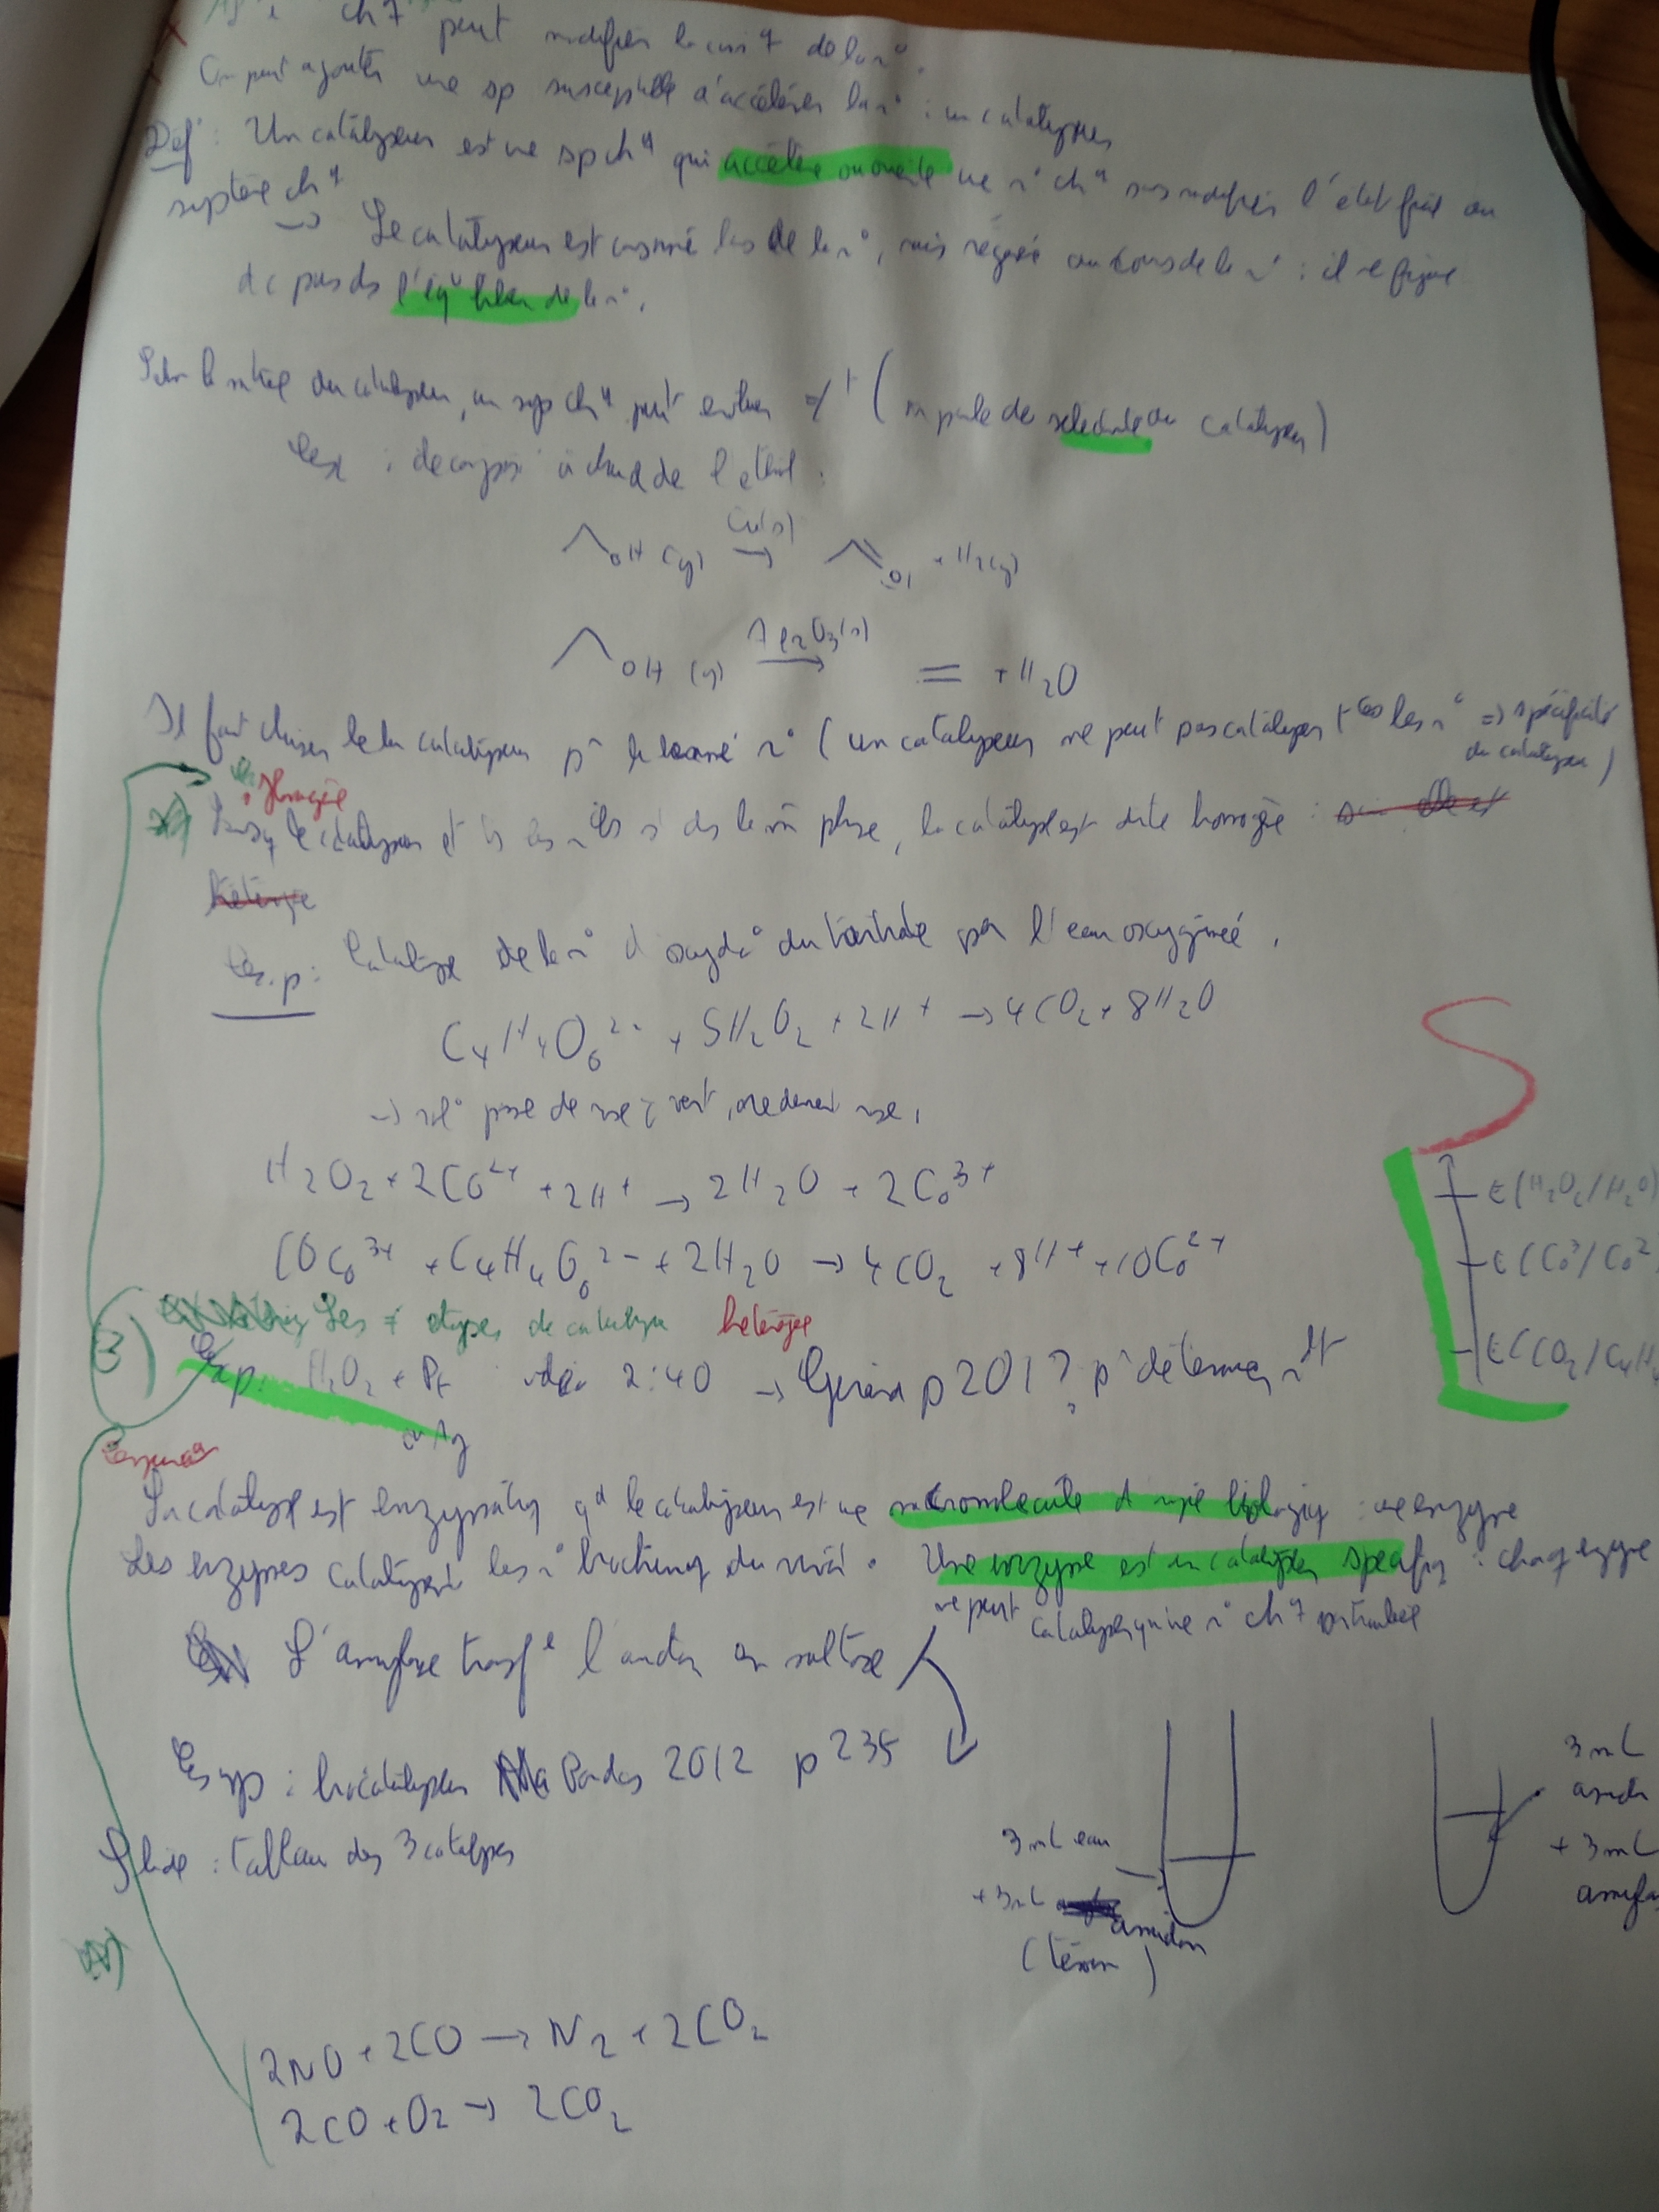 ch q peut modifier la ciné q de la r°.
On peut ajouter une sp susceptible d'accélérer la r° : un catalyseur
Def : Un catalyseur est une sp ch q qui accélère ou oriente une r° ch q sans modifier l'état final du
système ch q
→ Le catalyseur est consommé lors de la r°, mais régénéré au cours de la r° : il ne figure
dc pas ds l'éq° bilan de la r°.
Selon la nature du catalyseur, un syst ch q peut évoluer ≠t (on parle de sélectivité du catalyseur)
Ex : décompo° à chaud de l'éthanol :
OH (g) Cu(s) → O + H2(g)
OH (g) Al2O3(s) → = + H2O
Il faut choisir le bon catalyseur pr la bonne r° (un catalyseur ne peut pas catalyser ttes les r° => spécificité
du catalyseur)
Homogène
Lorsq le catalyseur et ts les st ds la mm phase, la catalyse est dite homogène : elle est
hétérogène
Exp : Catalyse de la r° d'oxyda° du tartrate par l'eau oxygénée.
C4H4O6 2- + 5H2O2 + 2H+ → 4CO2 + 8H2O
→ sol° passe de rose à vert, redevient rose.
H2O2 + 2Co2+ + 2H+ → 2H2O + 2Co3+
10Co3+ + C4H4O6 2- + 2H2O → 4CO2 + 8H+ + 10Co2+
E(H2O2/H2O)
E(Co3/Co2
E(CO2/C4H4
3) Les ≠ types de catalyse hétérogène
Exp : H2O2 + Pt vidéo 2:40 → p 201? pr déterminer
ou Ag
Enzymatq
La catalyse est enzymatiq qd le catalyseur est une macromolécule d'origine biologiq : une enzyme
Les enzymes catalysent les r° biochimq du vivant. Une enzyme est un catalyseur spécifiq : chaq enzyme
ne peut catalyser qu'une r° ch q particulière
L'amylase transfe l'amidon en maltose
Exp : biocatalyseur Bordas 2012 p 235
3 mL eau
+ 3 mL amidon
(témoin)
3 mL
amidon
+ 3 mL
amylas
Slide : tableau des 3 catalyses
2NO + 2CO → N2 + 2CO2
2CO + O2 → 2CO2